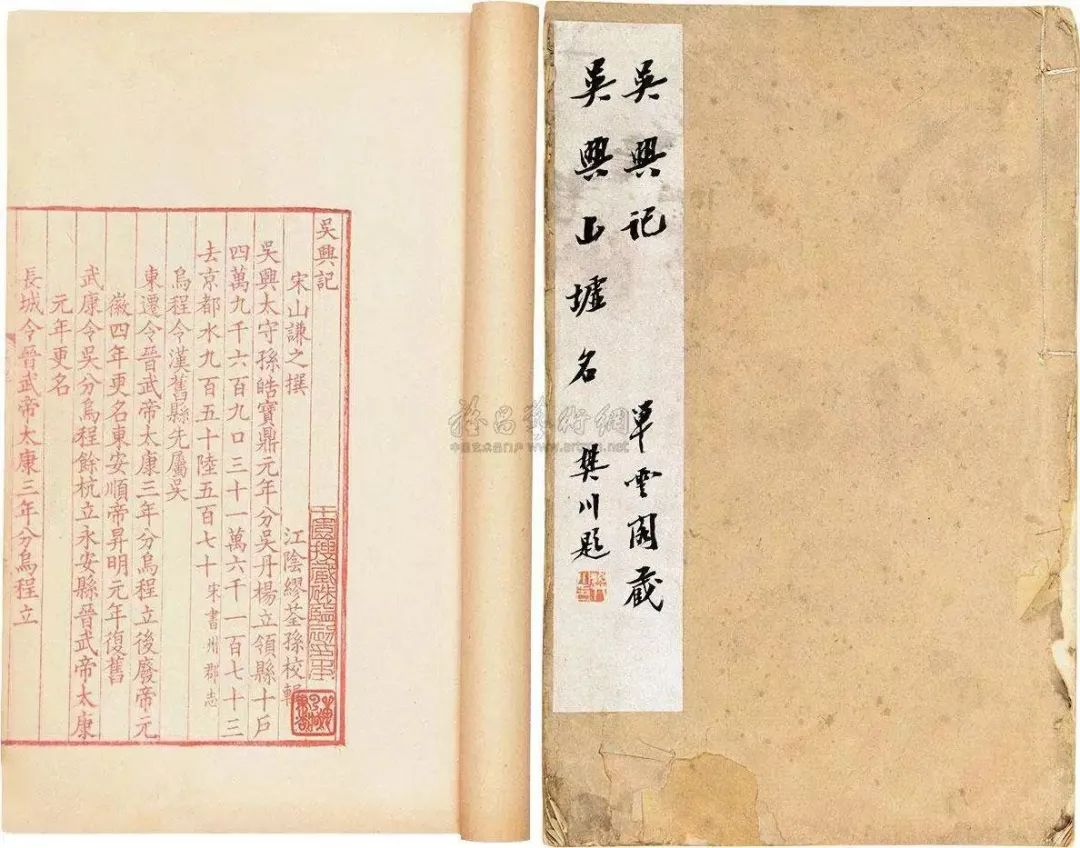 吳興記
宋山謙之撰
江陰繆荃孫校輯
吳興太守孫皓寶鼎元年分吳丹楊立領縣十戶
四萬九千六百九口三十一萬六千一百七十三
去京都水九百五十陸五百七十 宋書州郡志
烏程令漢舊縣先屬吳
東遷令晉武帝太康三年分烏程立後廢帝元
徽四年更名東安順帝昇明元年復舊
武康令吳分烏程餘杭立永安縣晉武帝太康
元年更名
長城令晉武帝太康三年分烏程立
吳興记
吳興山墟名
單雲閣藏
樊川題
www.art